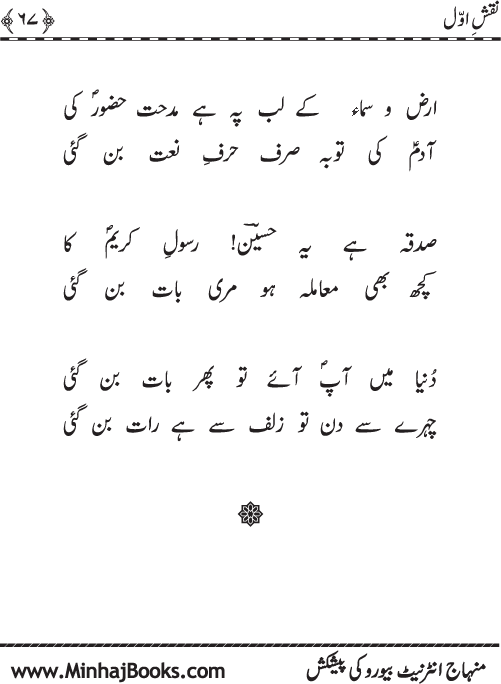 نقشِ اوّل
﴿۶۷﴾
ارض و سماء کے لب پہ ہے مدحت حضورؐ کی
آدمؑ کی توبہ صرف حرفِ نعت بن گئی
صدقہ ہے یہ حسینؔ! رسولِ کریمؐ کا
کچھ بھی معاملہ ہو مری بات بن گئی
دُنیا میں آپؐ آئے تو پھر بات بن گئی
چہرے سے دن تو زلف سے ہے رات بن گئی
منہاج انٹرنیٹ بیورو کی پیشکش
www.MinhajBooks.com